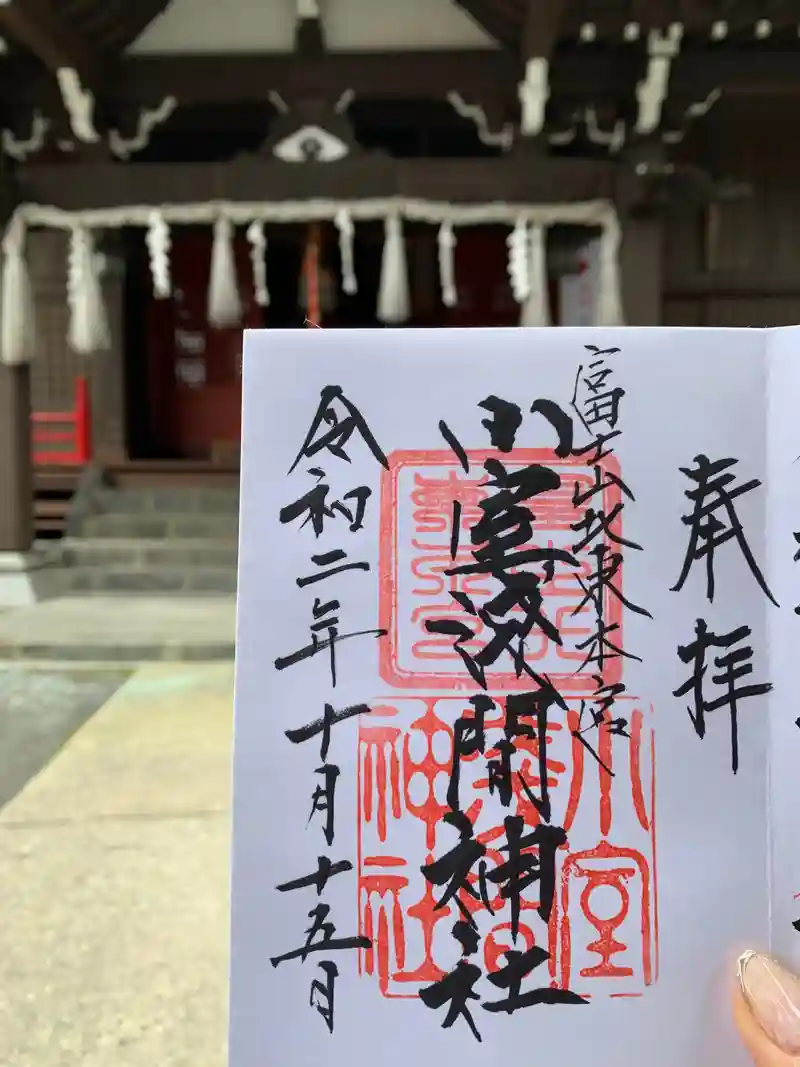 奉拝
富士山北東本宮
小室浅間神社
令和二年十月十五日
小室
浅間
神社